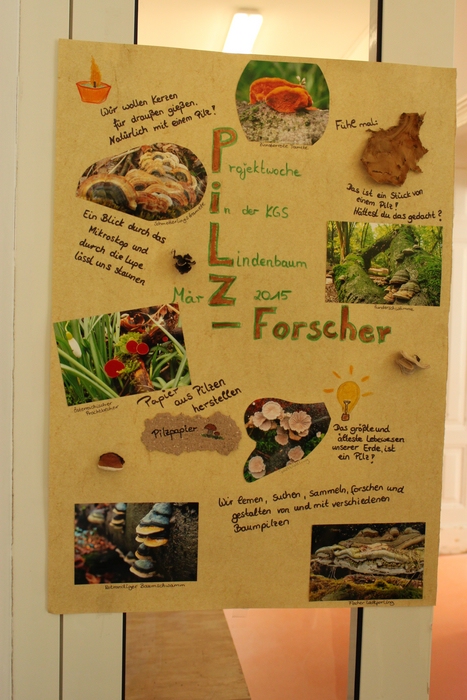 Wir wollen Kerzen
für draußen gießen.
Natürlich mit einem Pilz!
Fühl mal:
Das ist ein Stück von
einem Pilz!
Hättest du das gedacht?
Projektwoche
in der KGS
Lindenbaum
MärZ 2015
- Forscher
Ein Blick durch das
Mikroskop und
durch die Lupe
lässt uns staunen
Österreichischer
Papier aus Pilzen
herstellen
Pilzpapier
Das größte und
älteste Lebewesen
unserer Erde, ist
ein Pilz!
Wir lernen, suchen, sammeln, forschen und
gestalten von und mit verschiedenen
Baumpilzen